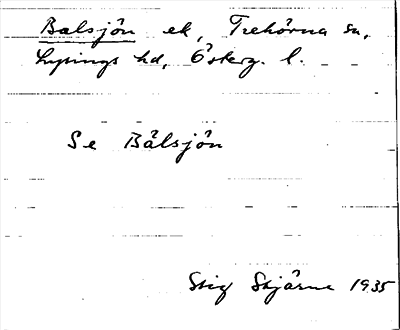 Balsjön ek, Trehörna sn,
Lysings hd, Österg. l.
Se Bålsjön
Stig Stjärne 1935